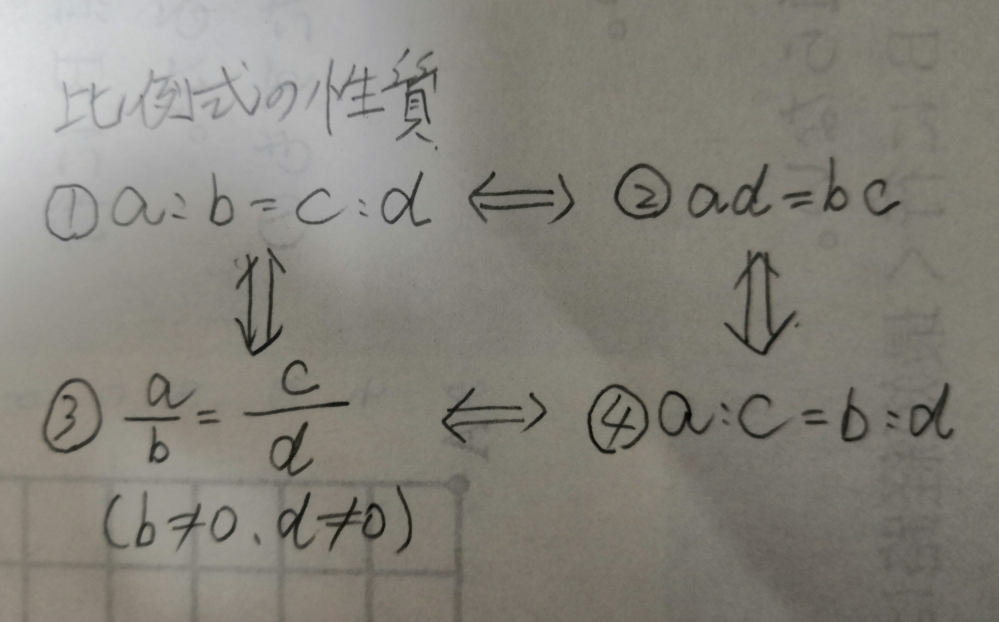 比例式の性質
①a:b=c:d ⇔ ②ad=bc
⇕ ⇕
③a/b=c/d ⇔ ④a:c=b:d
(b≠0、d≠0)